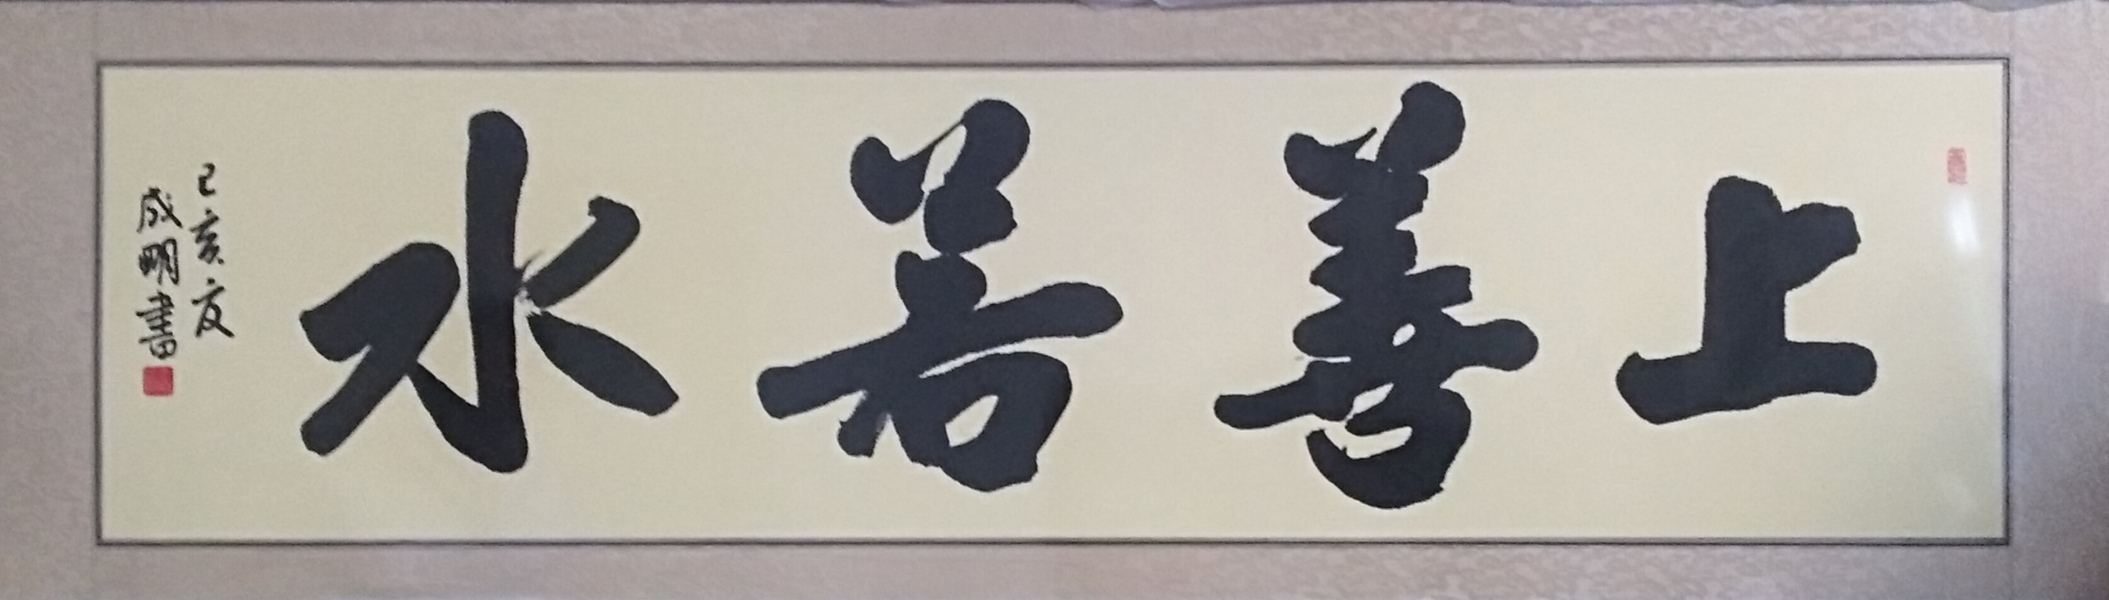 上善若水
己亥夏
成明書